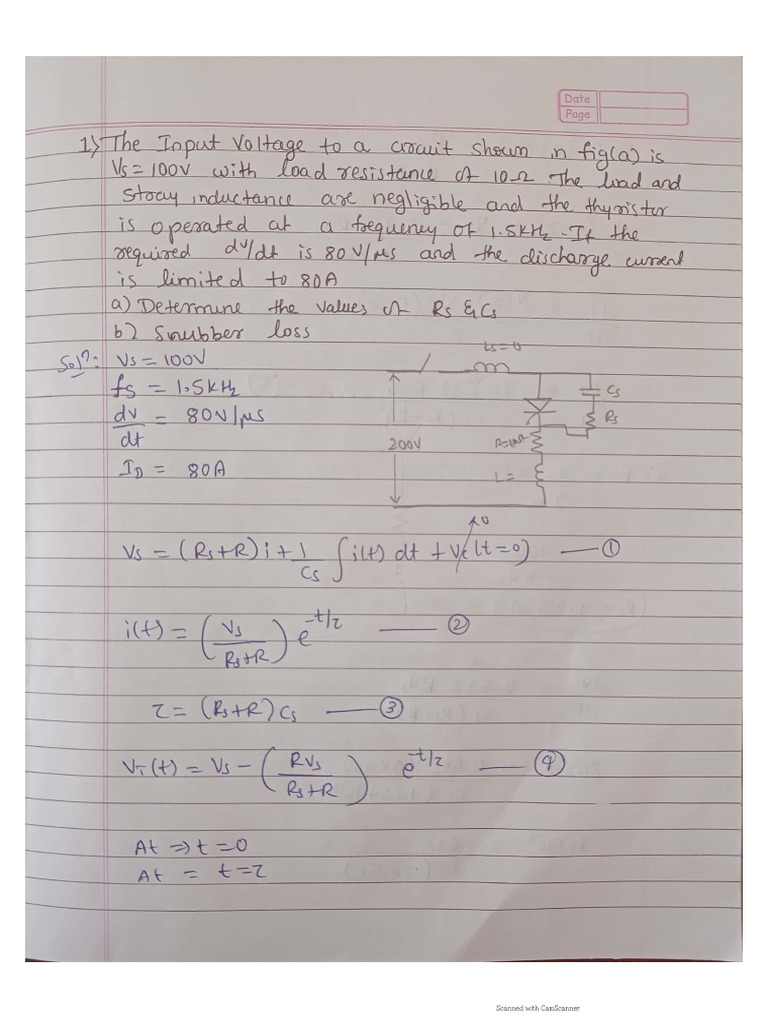 Date
Page
1) The Input Voltage to a circuit shown in fig(a) is
Vs = 100V with load resistance of 10Ω The load and
stray inductance are negligible and the thyristor
is operated at a frequency of 1.5kHz. If the
required dv/dt is 80V/μs and the discharge current
is limited to 80A
a) Determine the values of Rs & Cs
b) Snubber loss
Solⁿ: Vs = 100V
fs = 1.5kHz
dv/dt = 80V/μs
ID = 80A
Ls=0
Cs
Rs
200V
R=10Ω
L=
Vs = (Rs+R)i + 1/Cs ∫i(t) dt + Vc(t=0) → 0 —— ①
i(t) = (Vs/(Rs+R)) e^-t/τ —— ②
τ = (Rs+R)Cs —— ③
VT(t) = Vs - (RVs/(Rs+R)) e^-t/τ —— ④
At ⇒ t=0
At = t=τ
Scanned with CamScanner